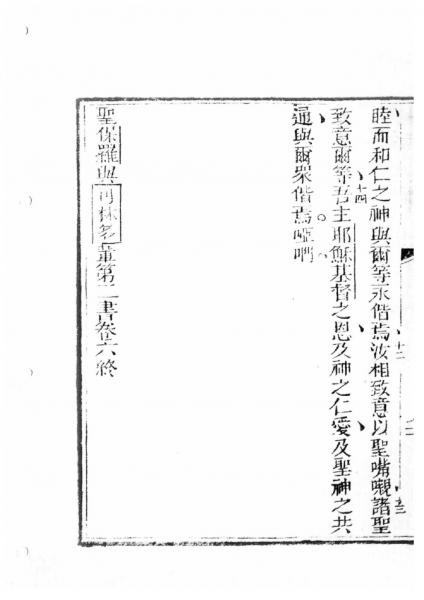 睦而和仁之神與爾等永偕焉汝相致意以聖嘴嚫諸聖
致意爾等吾主耶穌基督之恩及神之仁愛及聖神之共
通與爾眾偕焉啞吶
聖保羅與可林多輩第二書卷六終
十二
十三
十四